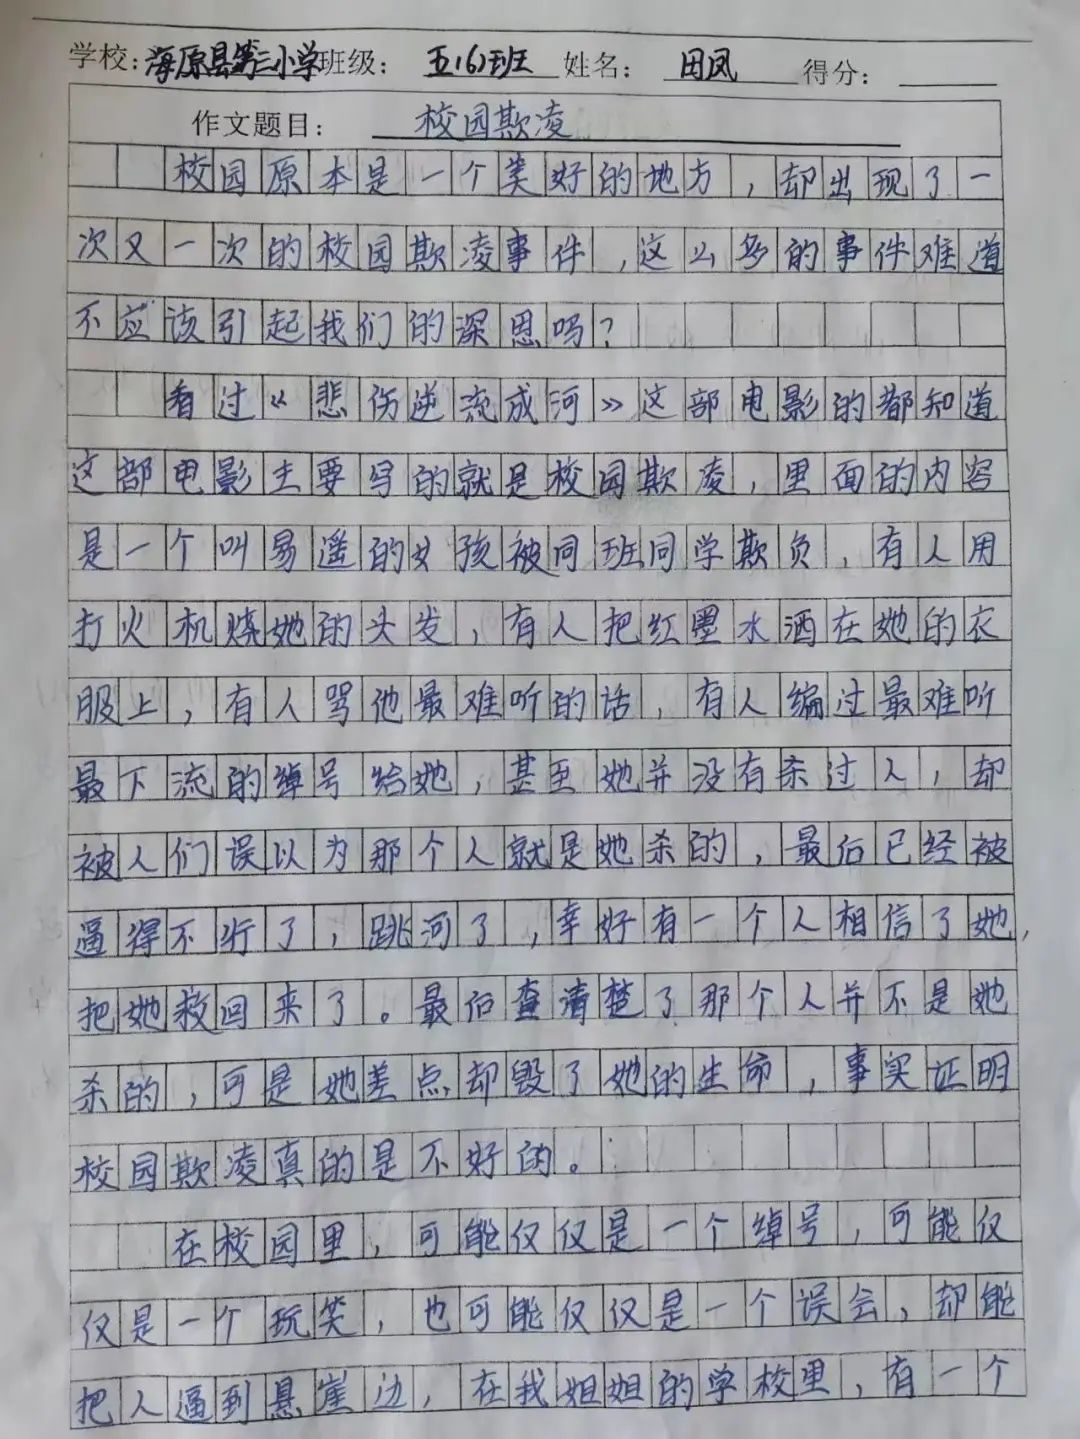 学校：海原县第三小学班级：五(6)班 姓名：田凤 得分：
作文题目：校园欺凌
校园原本是一个美好的地方，却出现了一
次又一次的校园欺凌事件，这么多的事件难道
不应该引起我们的深思吗？
看过《悲伤逆流成河》这部电影的都知道
这部电影主要写的就是校园欺凌，里面的内容
是一个叫易遥的女孩被同班同学欺负，有人用
打火机烧她的头发，有人把红墨水洒在她的衣
服上，有人骂他最难听的话，有人编过最难听
最下流的绰号给她，甚至她并没有杀过人，却
被人们误以为那个人就是她杀的，最后已经被
逼得不行了，跳河了，幸好有一个人相信了她，
把她救回来了。最后查清楚了那个人并不是她
杀的，可是她差点却毁了她的生命，事实证明
校园欺凌真的是不好的。
在校园里，可能仅仅是一个绰号，可能仅
仅是一个玩笑，也可能仅仅是一个误会，却能
把人逼到悬崖边，在我姐姐的学校里，有一个